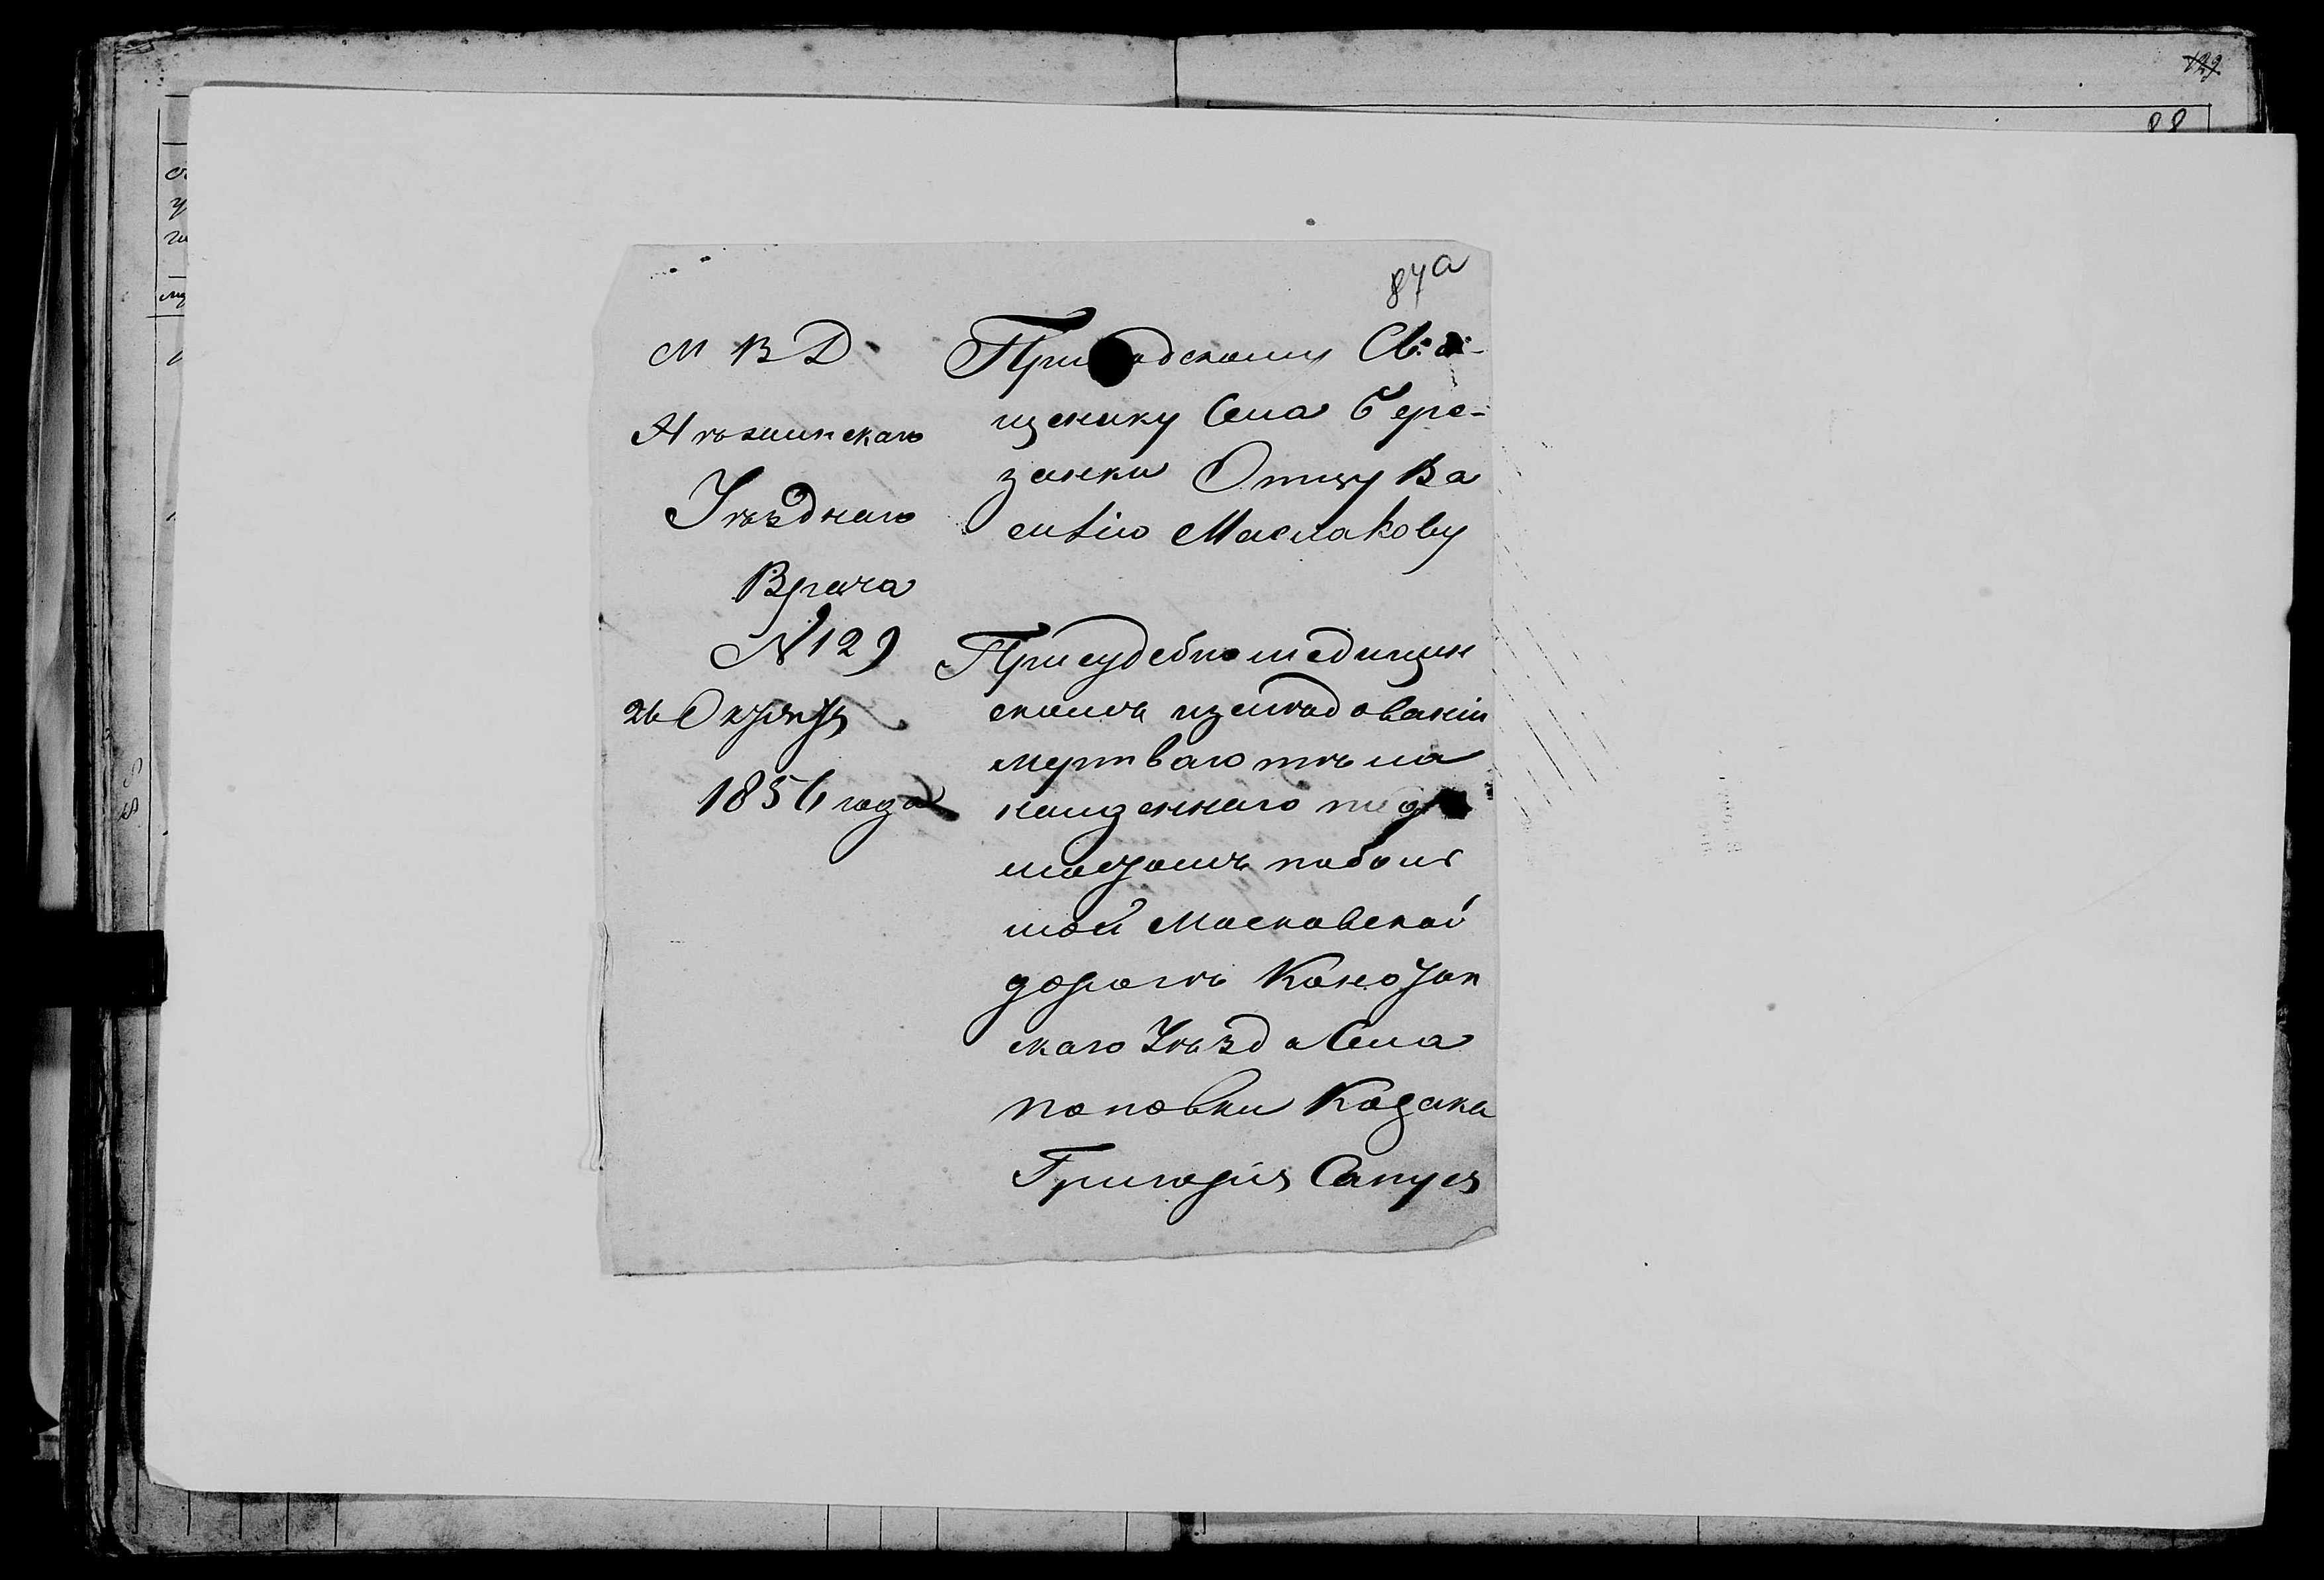 129
88
87а
М В Д
Нѣжинскаго
Уѣзднаго
Врача
№ 129
26 Октября
1856 года
Приходскому Свя-
щенику Села Бере-
занки Отцу Ва
силію Маслакову
При судебно медицин
скомъ изслѣдовании
мертваго тѣла
найденнаго подъ
мостомъ по боль
шой Московской
дорогѣ Конотоп
скаго Уѣзда Села
поповки Козака
Григорія Сапуея